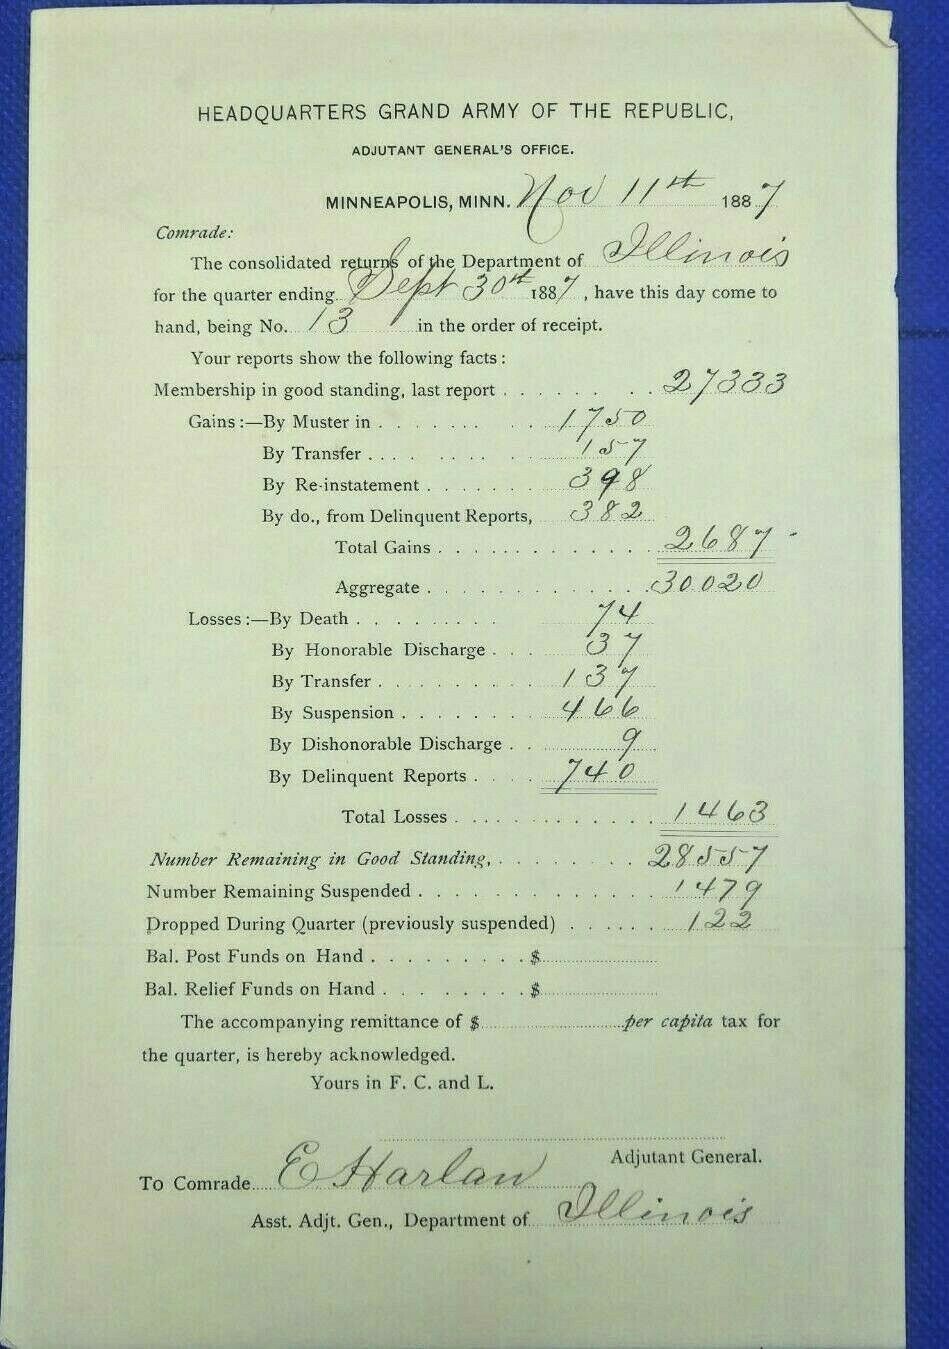 HEADQUARTERS GRAND ARMY OF THE REPUBLIC,
ADJUTANT GENERAL'S OFFICE.
MINNEAPOLIS, MINN. Nov 11th 1887
Comrade:
The consolidated returns of the Department of Illinois
for the quarter ending Sept 30th 1887, have this day come to
hand, being No. 13 in the order of receipt.
Your reports show the following facts:
Membership in good standing, last report . . . . . . . . 27333
Gains:—By Muster in . . . . . . . . . 1750
By Transfer . . . . . . . . . . 157
By Re-instatement . . . . . . . 398
By do., from Delinquent Reports, 382
Total Gains . . . . . . . . . . . . . 2687
Aggregate . . . . . . . . . . . . . 30020
Losses:—By Death . . . . . . . . . 74
By Honorable Discharge . . . 37
By Transfer . . . . . . . . . . 137
By Suspension . . . . . . . . 466
By Dishonorable Discharge . . 9
By Delinquent Reports . . . . 740
Total Losses . . . . . . . . . . . . 1463
Number Remaining in Good Standing, . . . . . . . . 28557
Number Remaining Suspended . . . . . . . . . . . . . 1479
Dropped During Quarter (previously suspended) . . . . . . 122
Bal. Post Funds on Hand . . . . . . . . . $
Bal. Relief Funds on Hand . . . . . . . . $
The accompanying remittance of $ per capita tax for
the quarter, is hereby acknowledged.
Yours in F. C. and L.
Adjutant General.
To Comrade E Harlan
Asst. Adjt. Gen., Department of Illinois